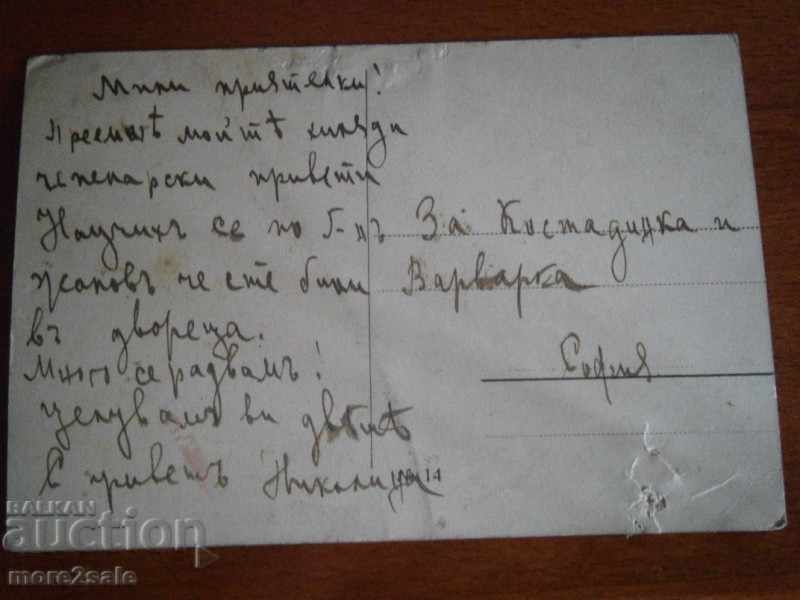 Мили приятелки!
Приемѣтѣ моитѣ хиляди
чепенарски привети
Научихъ се по Г-нъ
Жековъ че сте били
въ двореца.
Много се радвамъ!
Целувамъ ви двѣтѣ
С приветъ Николица
За Костадинка и
Варварка
София
14
BALKAN
auction
more2sale